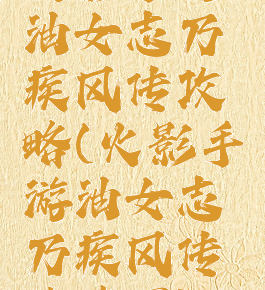 油女志乃
疾风传攻
略(火影手
游油女志
乃疾风传